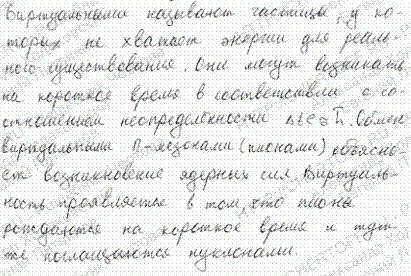 Виртуальными называют частицы, у ко-
торых не хватает энергии для реаль-
ного существования. Они могут возникать
на короткое время в соответствии с со-
отношением неопределённости Δtε≅ħ. Обмен
виртуальными П-мезонами (пионами) объясня-
ет возникновение ядерных сил. Виртуаль-
ность проявляется в том, что пионы
рождаются на короткое время и тут
же поглощаются нуклонами.